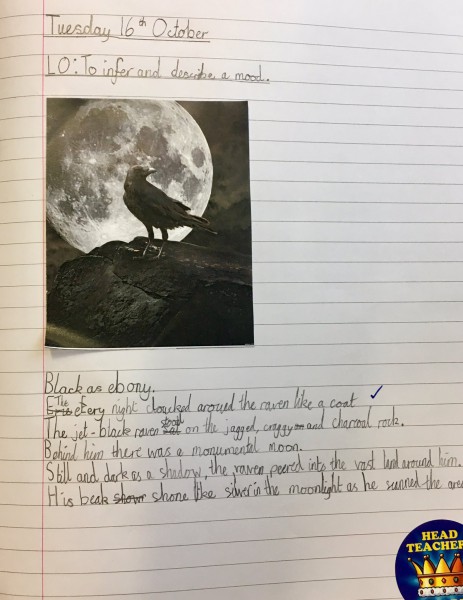 Tuesday 16th October
LO: To infer and describe a mood.
Black as ebony.
The eery night cloucked around the raven like a coat
The jet-black raven stood on the jagged, craggy and charcoal rock.
Behind him there was a monumental moon.
Still and dark as a shadow, the raven peered into the vast land around him.
His beak shone like silver in the moonlight as he scanned the area
HEAD
TEACHER